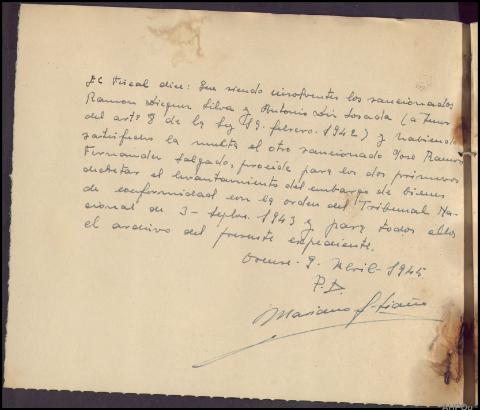 El Fiscal dice: Que siendo insolventes los sancionados
Ramon Dieguez Silva y Antonio Losada (a tenor
del artº 8 de la Ley 19. febrero. 1942) y habiendo
satisfecho la multa el otro sancionado Jose Ramon
Fernandez Salgado, procede para los dos primeros
decretar el levantamiento del embargo de bienes
de conformidad con la orden del Tribunal Na-
cional de 3- Septbre. 1943 y para todos ellos
el archivo del presente expediente.
Orense. 9. Abril- 1945.
P.D.
Mariano